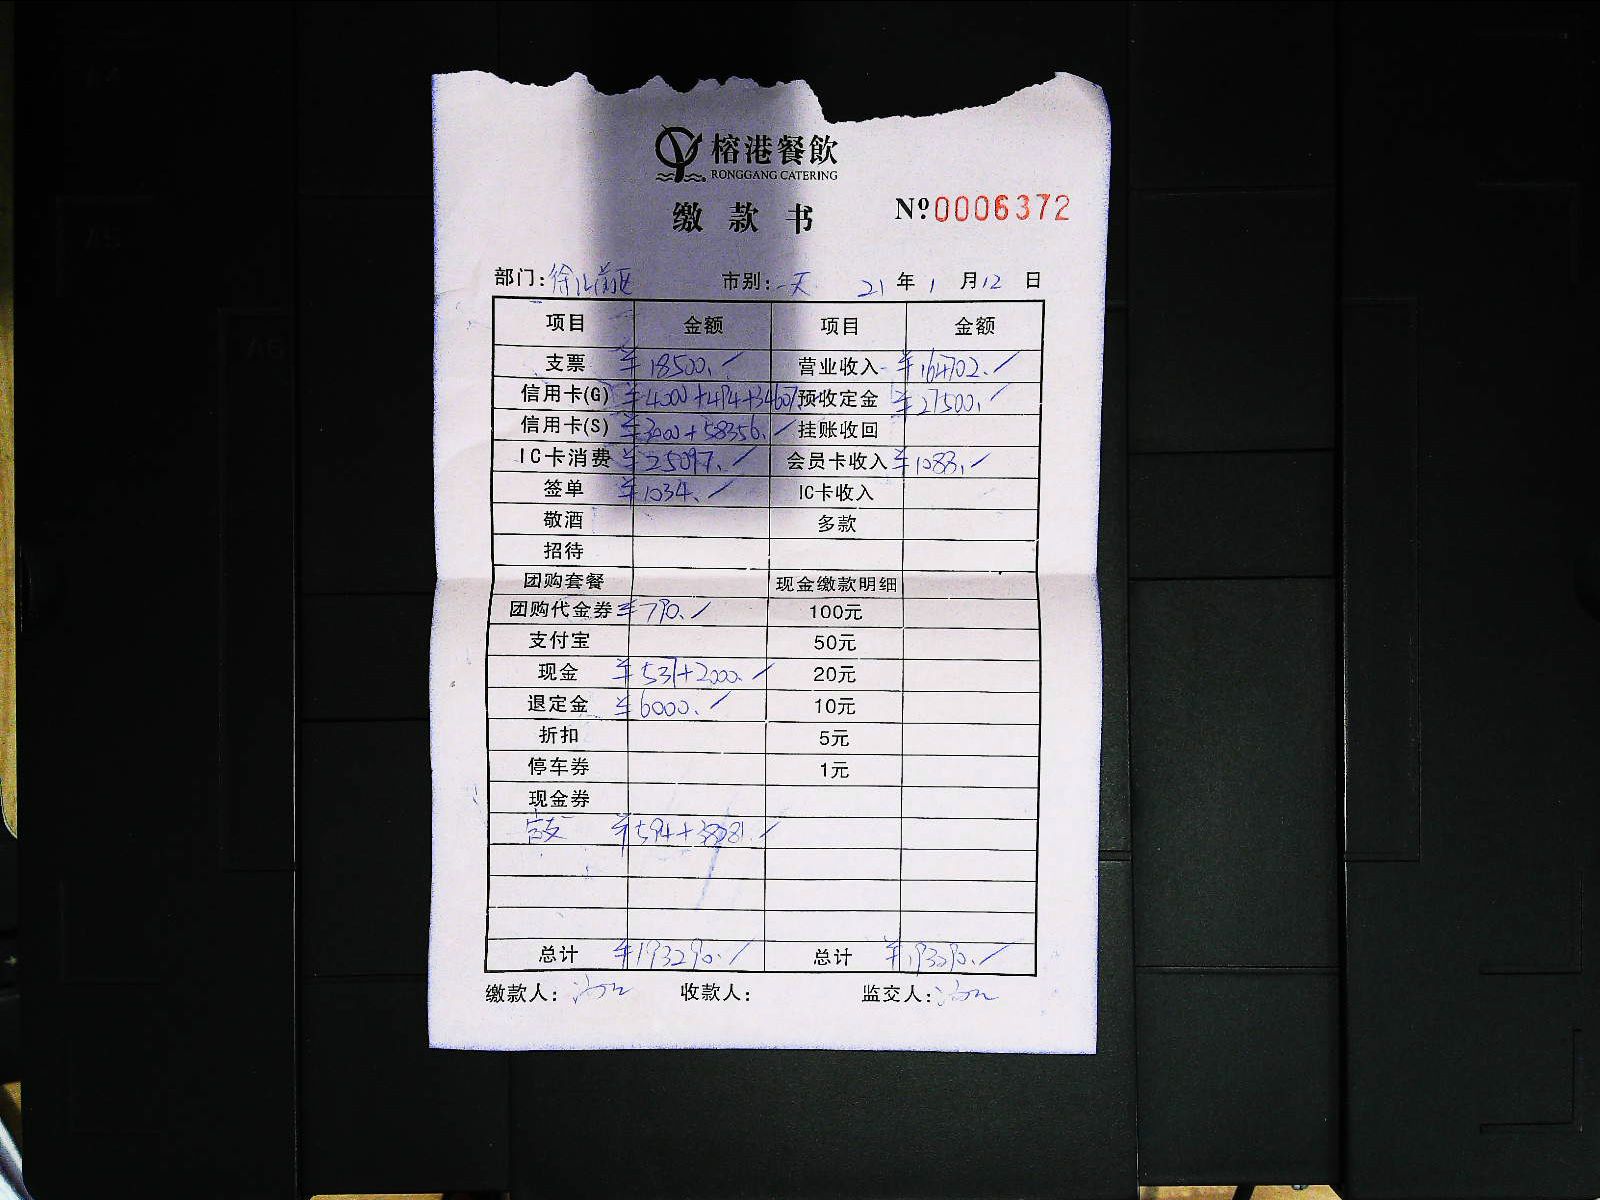 榕港餐飲
RONGGANG CATERING
缴款书 №0006372
部门: 徐汇 市别: 一天 21 年 1 月 12 日
项目 金额 项目 金额
支票 ¥18500. 营业收入 ¥164707.
信用卡(G) ¥4000+494+34607. 预收定金 ¥27500.
信用卡(S) ¥3000+58356. 挂账收回
IC卡消费 ¥25097. 会员卡收入 ¥1083.
签单 ¥1034. IC卡收入
敬酒 多款
招待
团购套餐 现金缴款明细
团购代金券 ¥790. 100元
支付宝 50元
现金 ¥531+2000. 20元
退定金 ¥6000. 10元
折扣 5元
停车券 1元
现金券
¥594+38287.
总计 ¥193290. 总计 ¥193290.
缴款人: 收款人: 监交人: